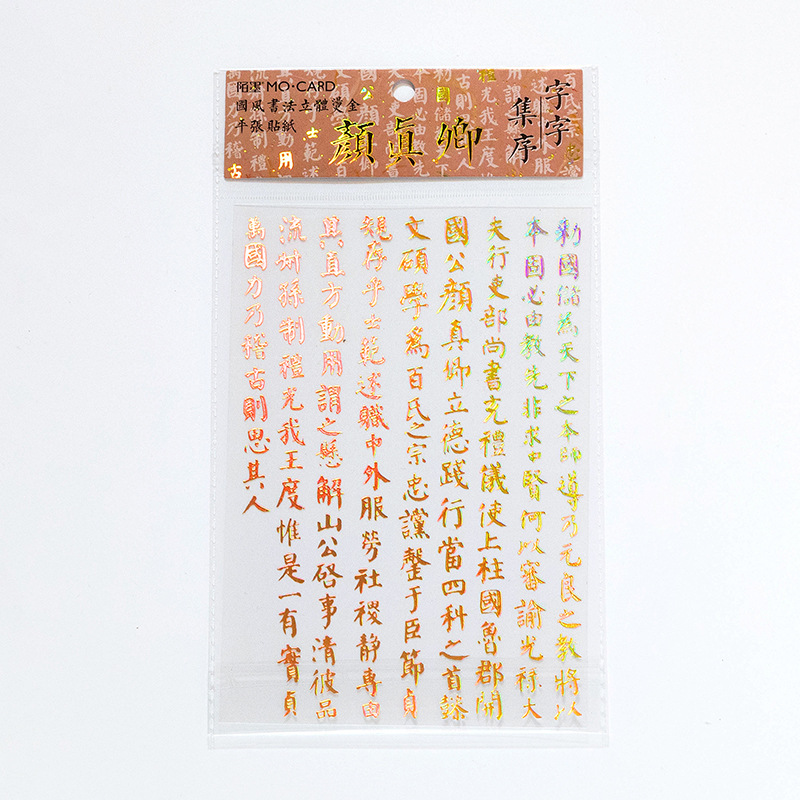 陌墨 MO·CARD
國風書法立體燙金
平張貼紙
顏眞卿
字字
集序
勑國儲為天下之本師導乃元良之教將以
本固必由教先非求忠賢何以審諭光祿大
夫行吏部尚書充禮儀使上柱國魯郡開
國公顏真卿立德踐行當四科之首懿
文碩學為百氏之宗忠讜罄于臣節貞
規存乎士範述職中外服勞社稷靜專由
其直方動用謂之懸解山公啓事清彼品
流叔孫制禮光我王度惟是一有實貞
萬國力乃稽古則思其人